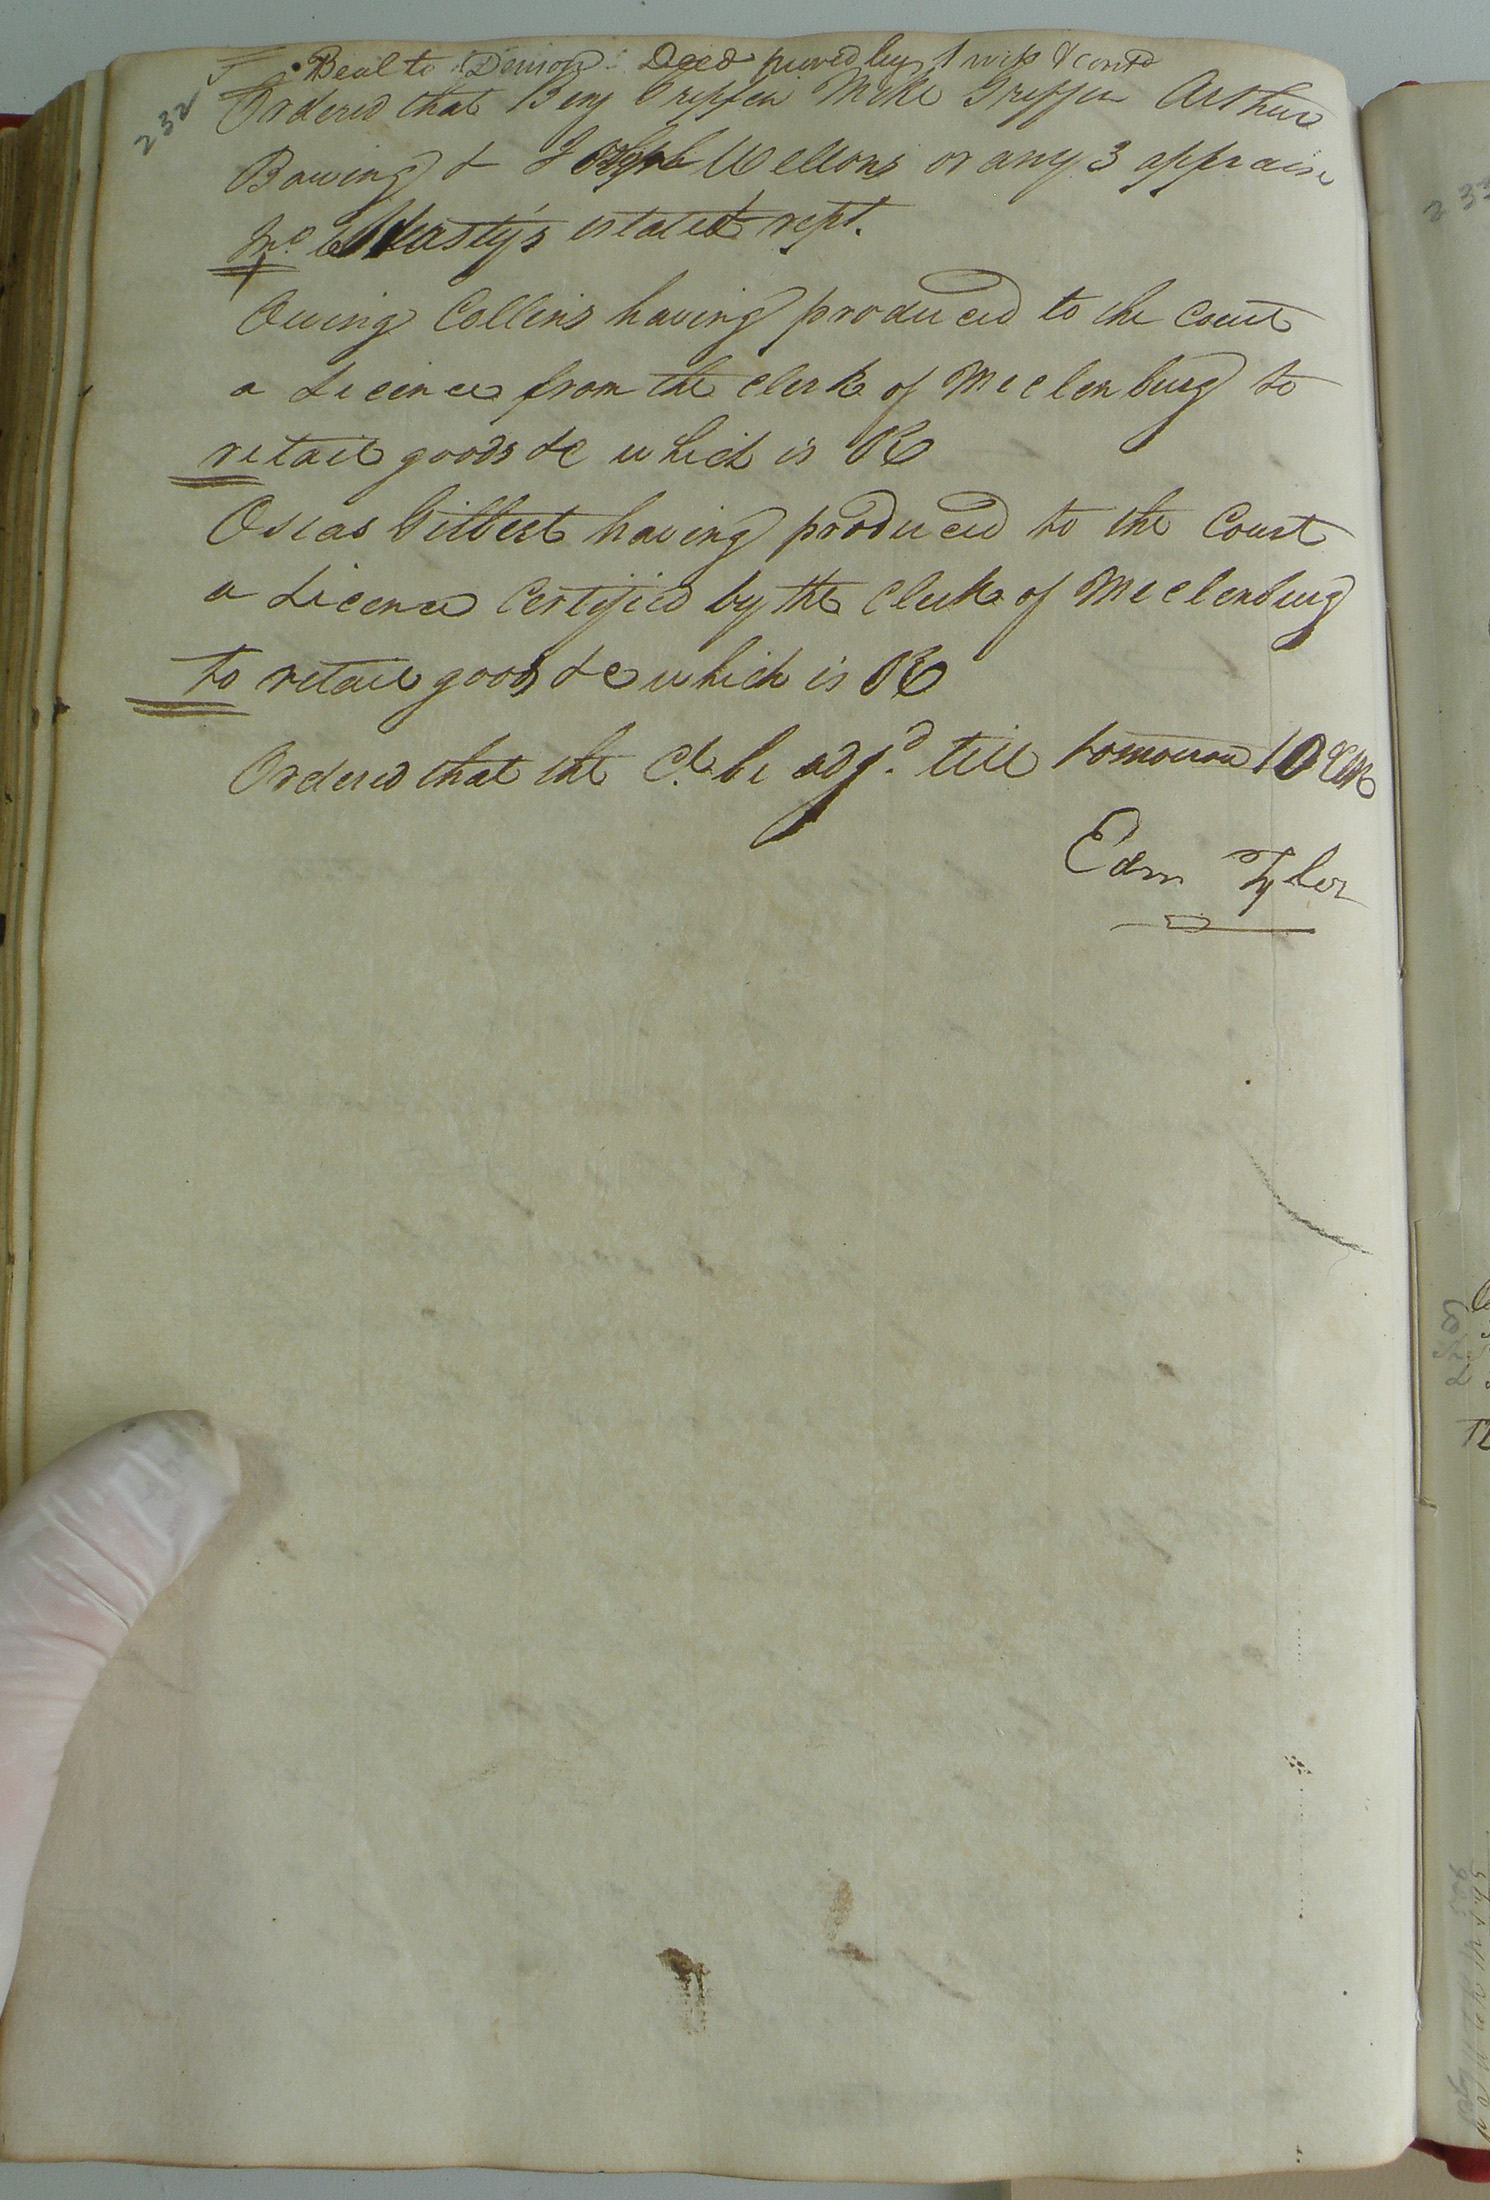 232
Beal to Denson: Deed proved by 1 wits & contd
Ordered that Benj Griffin Mike Griffin Arthur
Bowing & Joseph Wellons or any 3 appraise
estate & rept.
Owing Collins having produced to the Court
a Licence from the Clerk of Meclenburg to
retail goods &c which is R
Osias Gilbert having produced to the Court
a Licence Certified by the Clerk of Meclenburg
to retail goods &c which is R
Ordered that the Ct be adjd. till tomorrow 10
Edm Tyler
233